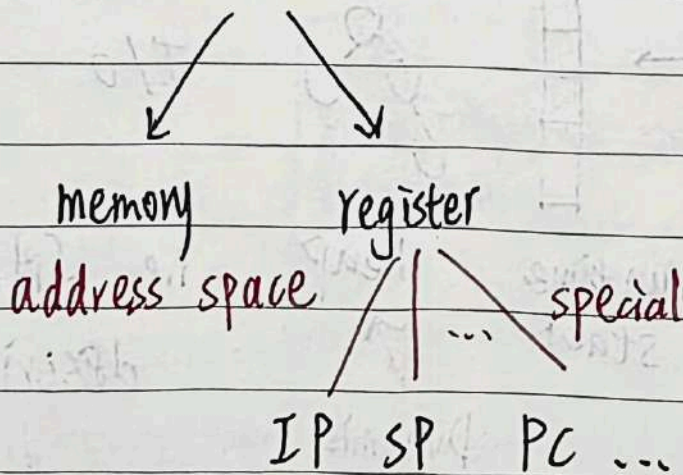 memory register
address space ... special
IP SP PC ...